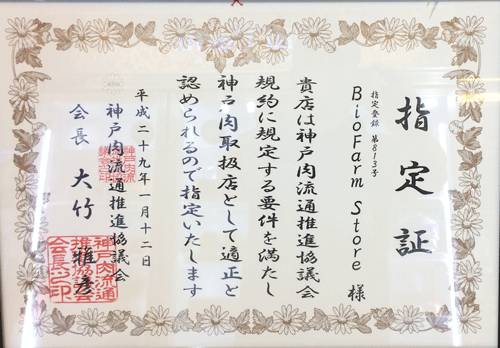 指定証
指定登録 第813号
BioFarm Store 様
貴店は神戸肉流通推進協議会
規約に規定する要件を満たし
神戸肉取扱店として適正と
認められるので指定いたします
平成二十九年一月十二日
神戸肉流通推進協議会
会長 大竹 雅彦
神戸肉流通
推進協議会
会長之印